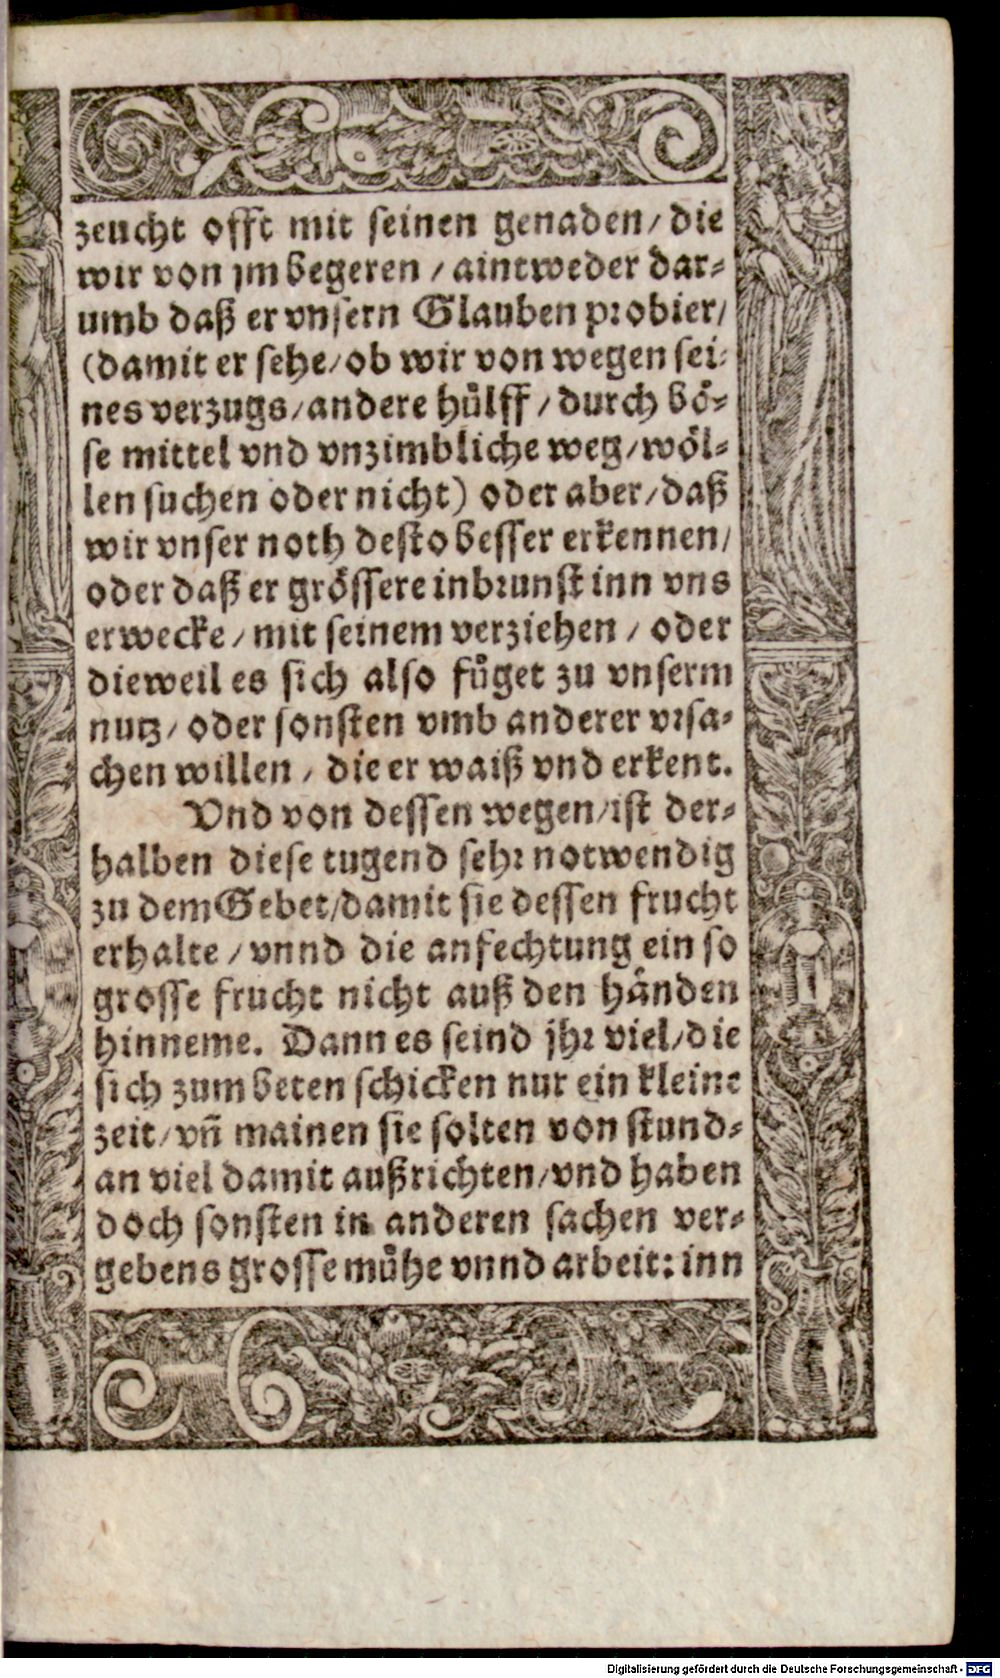 zeucht offt mit seinen genaden/ die
wir von jm begeren / aintweder dar⸗
umb daß er vnsern Glauben probier/
(damit er sehe/ ob wir von wegen sei⸗
nes verzugs/ andere huͤlff / durch boͤ⸗
se mittel vnd vnzimbliche weg/ woͤl⸗
len suchen oder nicht) oder aber/ daß
wir vnser noth desto besser erkennen/
oder daß er groͤssere inbrunst inn vns
erwecke / mit seinem verziehen / oder
dieweil es sich also fuͤget zu vnserm
nutz/ oder sonsten vmb anderer vrsa⸗
chen willen / die er waiß vnd erkent.
Vnd von dessen wegen/ ist der⸗
halben diese tugend sehr notwendig
zu dem Gebet/ damit sie dessen frucht
erhalte / vnnd die anfechtung ein so
grosse frucht nicht auß den haͤnden
hinneme. Dann es seind jhr viel/ die
sich zum beten schicken nur ein kleine
zeit/ vn̄ mainen sie solten von stund⸗
an viel damit außrichten/ vnd haben
doch sonsten in anderen sachen ver⸗
gebens grosse muͤhe vnnd arbeit: inn
Digitalisierung gefördert durch die Deutsche Forschungsgemeinschaft - DFG